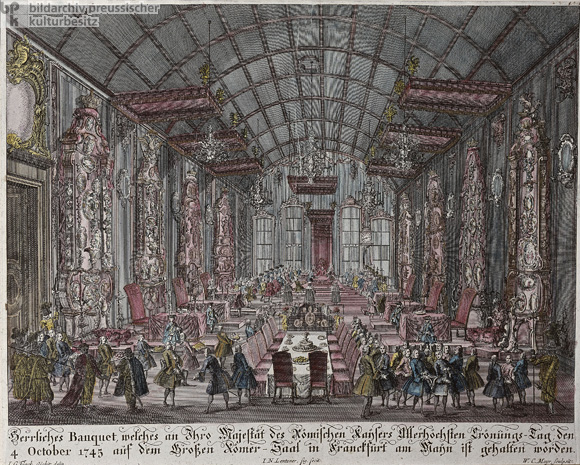 bildarchiv preussischer
kulturbesitz
Herrliches Banquet, welches an Ihro Majestät des Römischen Kaysers Allerhöchsten Crönungs-Tag den
4 October 1745 auf dem Großen Römer-Saal in Franckfurt am Mayn ist gehalten worden.
I. N. Lentzner fec.
W. C. Mayr, sculpsit.